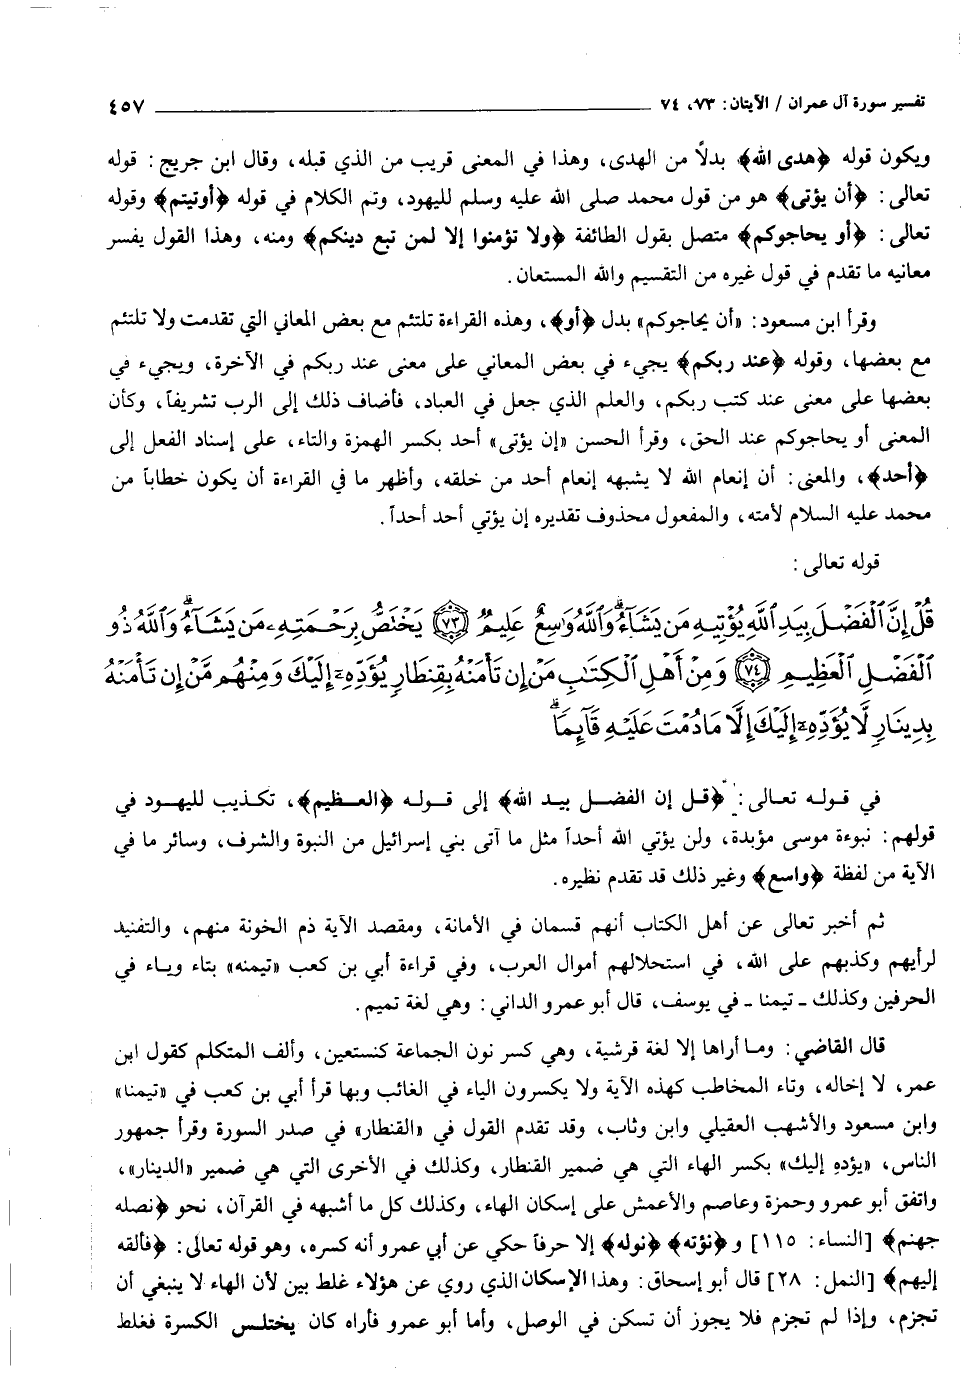 تفسير سورة آل عمران / الآيتان: ٧٣، ٧٤ ٤٥٧
ويكون قوله ﴿هدى الله﴾ بدلاً من الهدى، وهذا في المعنى قريب من الذي قبله، وقال ابن جريج: قوله
تعالى: ﴿أن يؤتى﴾ هو من قول محمد صلى الله عليه وسلم لليهود، وتم الكلام في قوله ﴿أوتيتم﴾ وقوله
تعالى: ﴿أو يحاجوكم﴾ متصل بقول الطائفة ﴿ولا تؤمنوا إلا لمن تبع دينكم﴾ ومنه، وهذا القول يفسر
معانيه ما تقدم في قول غيره من التقسيم والله المستعان.
وقرأ ابن مسعود: «أن يحاجوكم» بدل ﴿أو﴾، وهذه القراءة تلتئم مع بعض المعاني التي تقدمت ولا تلتئم
مع بعضها، وقوله ﴿عند ربكم﴾ يجيء في بعض المعاني على معنى عند ربكم في الآخرة، ويجيء في
بعضها على معنى عند كتب ربكم، والعلم الذي جعل في العباد، فأضاف ذلك إلى الرب تشريفاً، وكأن
المعنى أو يحاجوكم عند الحق، وقرأ الحسن «إن يؤتى» أحد بكسر الهمزة والتاء، على إسناد الفعل إلى
﴿أحد﴾، والمعنى: أن إنعام الله لا يشبهه إنعام أحد من خلقه، وأظهر ما في القراءة أن يكون خطاباً من
محمد عليه السلام لأمته، والمفعول محذوف تقديره إن يؤتي أحد أحداً.
قوله تعالى:
قُلْ إِنَّ ٱلْفَضْلَ بِيَدِ ٱللَّهِ يُؤْتِيهِ مَن يَشَآءُ ۗ وَٱللَّهُ وَٰسِعٌ عَلِيمٌ ﴿٧٣﴾ يَخْتَصُّ بِرَحْمَتِهِۦ مَن يَشَآءُ ۗ وَٱللَّهُ ذُو
ٱلْفَضْلِ ٱلْعَظِيمِ ﴿٧٤﴾ وَمِنْ أَهْلِ ٱلْكِتَٰبِ مَنْ إِن تَأْمَنْهُ بِقِنطَارٍ يُؤَدِّهِۦٓ إِلَيْكَ وَمِنْهُم مَّنْ إِن تَأْمَنْهُ
بِدِينَارٍ لَّا يُؤَدِّهِۦٓ إِلَيْكَ إِلَّا مَا دُمْتَ عَلَيْهِ قَآئِمًا ۗ
في قوله تعالى: ﴿قل إن الفضل بيد الله﴾ إلى قوله ﴿العظيم﴾، تكذيب لليهود في
قولهم: نبوءة موسى مؤبدة، ولن يؤتي الله أحداً مثل ما آتى بني إسرائيل من النبوة والشرف، وسائر ما في
الآية من لفظة ﴿واسع﴾ وغير ذلك قد تقدم نظيره.
ثم أخبر تعالى عن أهل الكتاب أنهم قسمان في الأمانة، ومقصد الآية ذم الخونة منهم، والتفنيد
لرأيهم وكذبهم على الله، في استحلالهم أموال العرب، وفي قراءة أبي بن كعب «تيمنه» بتاء وياء في
الحرفين وكذلك ـ تيمنا ـ في يوسف، قال أبو عمرو الداني: وهي لغة تميم.
قال القاضي: وما أراها إلا لغة قرشية، وهي كسر نون الجماعة كنستعين، وألف المتكلم كقول ابن
عمر، لا إخاله، وتاء المخاطب كهذه الآية ولا يكسرون الياء في الغائب وبها قرأ أبي بن كعب في «تيمنا»
وابن مسعود والأشهب العقيلي وابن وثاب، وقد تقدم القول في «القنطار» في صدر السورة وقرأ جمهور
الناس، «يؤدهِ إليك» بكسر الهاء التي هي ضمير القنطار، وكذلك في الأخرى التي هي ضمير «الدينار»،
واتفق أبو عمرو وحمزة وعاصم والأعمش على إسكان الهاء، وكذلك كل ما أشبهه في القرآن، نحو ﴿نصله
جهنم﴾ [النساء: ١١٥] و ﴿نؤته﴾ ﴿نوله﴾ إلا حرفاً حكي عن أبي عمرو أنه كسره، وهو قوله تعالى: ﴿فألقه
إليهم﴾ [النمل: ٢٨] قال أبو إسحاق: وهذا الإسكان الذي روي عن هؤلاء غلط بين لأن الهاء لا ينبغي أن
تجزم، وإذا لم تجزم فلا يجوز أن تسكن في الوصل، وأما أبو عمرو فأراه كان يختلس الكسرة فغلط